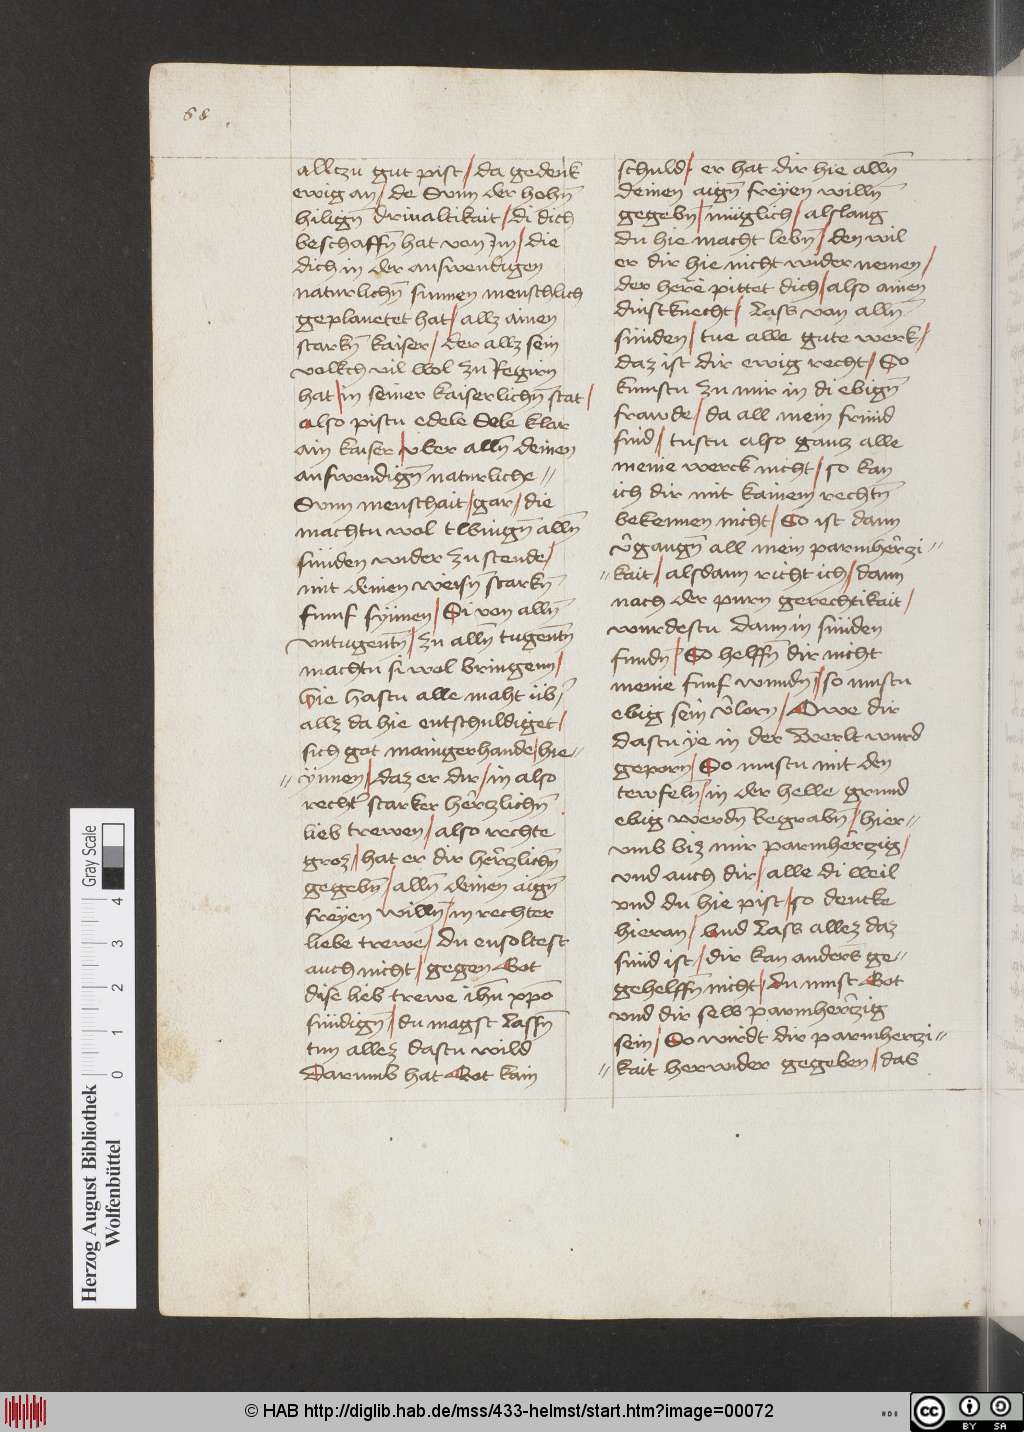 68
allczu gut pist / da gedenk
ewig an / de Sunn der hohn̄
hilign̄ drinaltikait / di dich
beschaffn̄ hat von Im / die
dich in der auswendigen
naturlichn̄ sinnen menschlich
geplanetet hat / allz ainen
starkn̄ kaiser / der allz sein
volkch vil wol zu Regirn
hat / in seiner kaiserlichn̄ stat /
also pistu edele Sele klar
ain kaiser / vber alln̄ deinen
auswendign̄ naturliche //
Sunn menschait / gar / die
machtu wol tbbingn̄ alln̄
sünden wider zu stende /
mit deinen weisn̄ starkn̄
funf synnen / Si von alln̄
vntugentn̄ / zu alln̄ tugentn̄
machtu si wol bringenn /
Wie hastu alle maht üb̄
allz da hie entschuldiget /
sich got maingerhande / hie //
// ynnen / daz er dir / in also
recht starker hertzlichn̄
lieb trewen / also rechte
groz / hat er dir hertzlichn̄
gegebn̄ / alln̄ deinen aign̄
freyen willn̄ / in rechter
liebe trewe / du ensoltest
auch nicht / gegen Got
dise lieb trewe ihū xp̄o
sündign̄ / du magst Lassn̄
tun allez dastu wild
Darumb hat Got kain
schuld / er hat dir hie alln̄
deinen aign̄ freyen willn̄
gegebn̄ / müglich / alslang
du hie macht lebn̄ / den wil
er dir hie nicht wider nemen /
der herre pittet dich / also ainen
dinstknecht / Lass von alln̄
sünden / tue alle gute werk /
daz ist dir ewig recht / So
kumstu zu mir in di ebign̄
frawde / da all mein fründ
sind / tustu also gantz alle
meine werck nicht / so kan
ich dir mit kainem rechtn̄
bekennen nicht / So ist dann
v̄gangn̄ all mein parmhertzi //
// kait / alsdann richt ich / dann
nach der purn gerechtikait /
wurdestu dann in sünden
fundn̄ / So helffn̄ dir nicht
meine funf wundn̄ / so mustu
ebig sein v̄lorn / Owe dir
dastu ye in der Werlt wurd
geporn / So mustu mit den
tewfeln̄ / in der helle grund
ebig werdn̄ begrabn̄ / hier //
vmb biz mir parmhertzig /
vnd auch dir / alle di weil
vnd du hie pist / so dencke
hieran / Und Lass allez daz
sünd ist / dir kan anders ge //
gehelffn̄ nicht / du must Got
vnd dir selb parmhertzig
sein / So wirdt dir parmhertzi //
// kait herwider gegeben / das
Herzog August Bibliothek
Wolfenbüttel
0 1 2 3 4
Gray Scale
© HAB http://diglib.hab.de/mss/433-helmst/start.htm?image=00072
HAB
cc BY SA